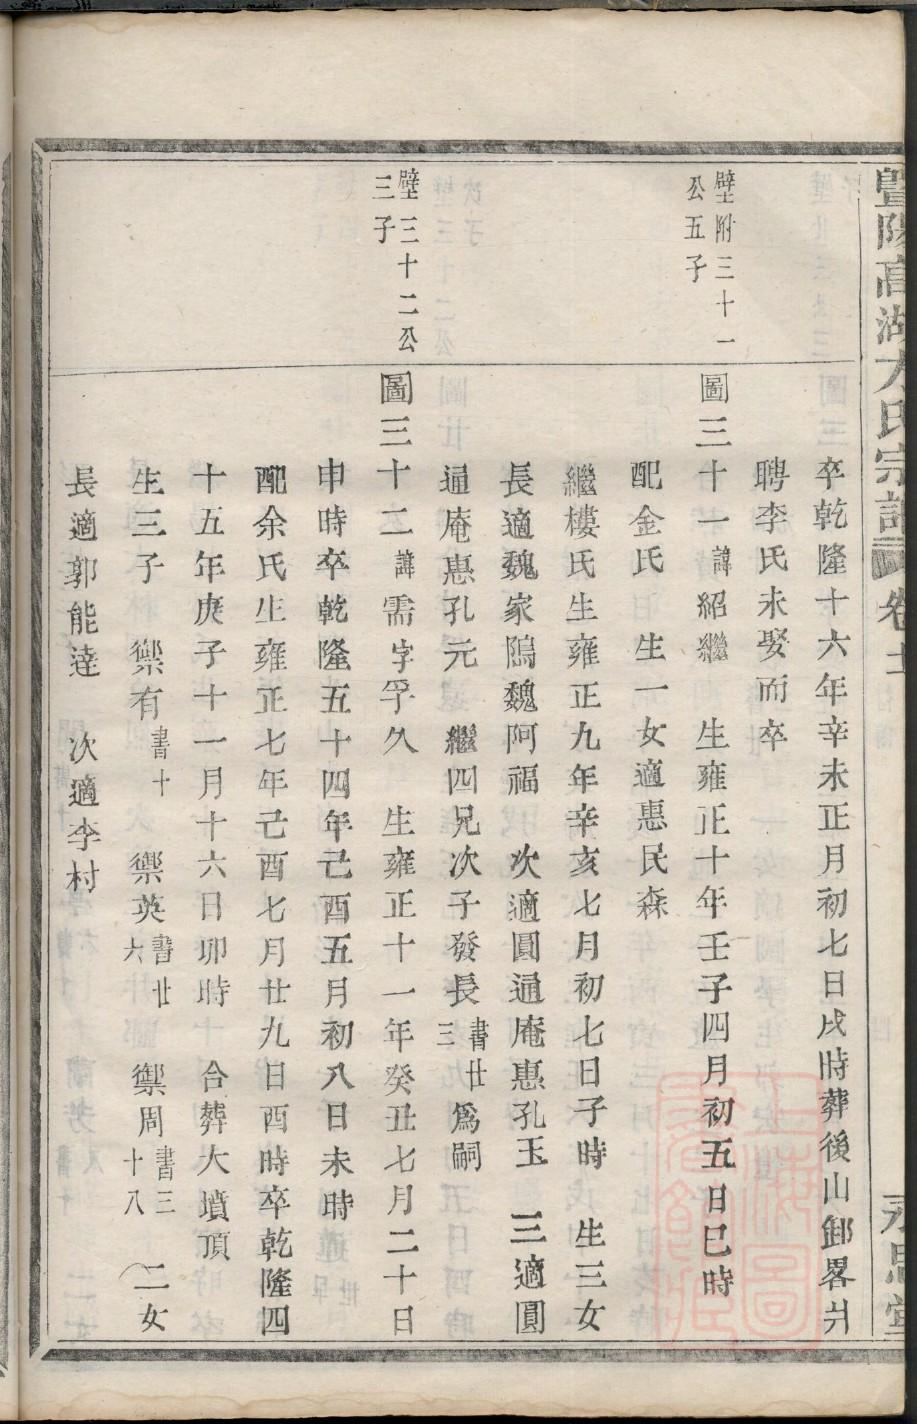 暨陽高湖方氏宗譜 卷十二 永思堂
卒乾隆十六年辛未正月初七日戌時葬後山鄁畧井
聘李氏未娶而卒
壁附三十一公五子
圖三十一諱紹繼 生雍正十年壬子四月初五日巳時
配金氏 生一女適惠民森
繼樓氏生雍正九年辛亥七月初七日子時 生三女
長適魏家隖魏阿福 次適圓通庵惠孔玉 三適圓
通庵惠孔元 繼四兄次子發長書廿三爲嗣
壁三十二公三子
圖三十二諱需字孚久 生雍正十一年癸丑七月二十日
申時卒乾隆五十四年己酉五月初八日未時
配余氏生雍正七年己酉七月廿九日酉時卒乾隆四
十五年庚子十一月十六日卯時 合葬大墳頂
生三子 禦有書十 禦英書廿六 禦周書三十八 二女
長適郭能達 次適李村